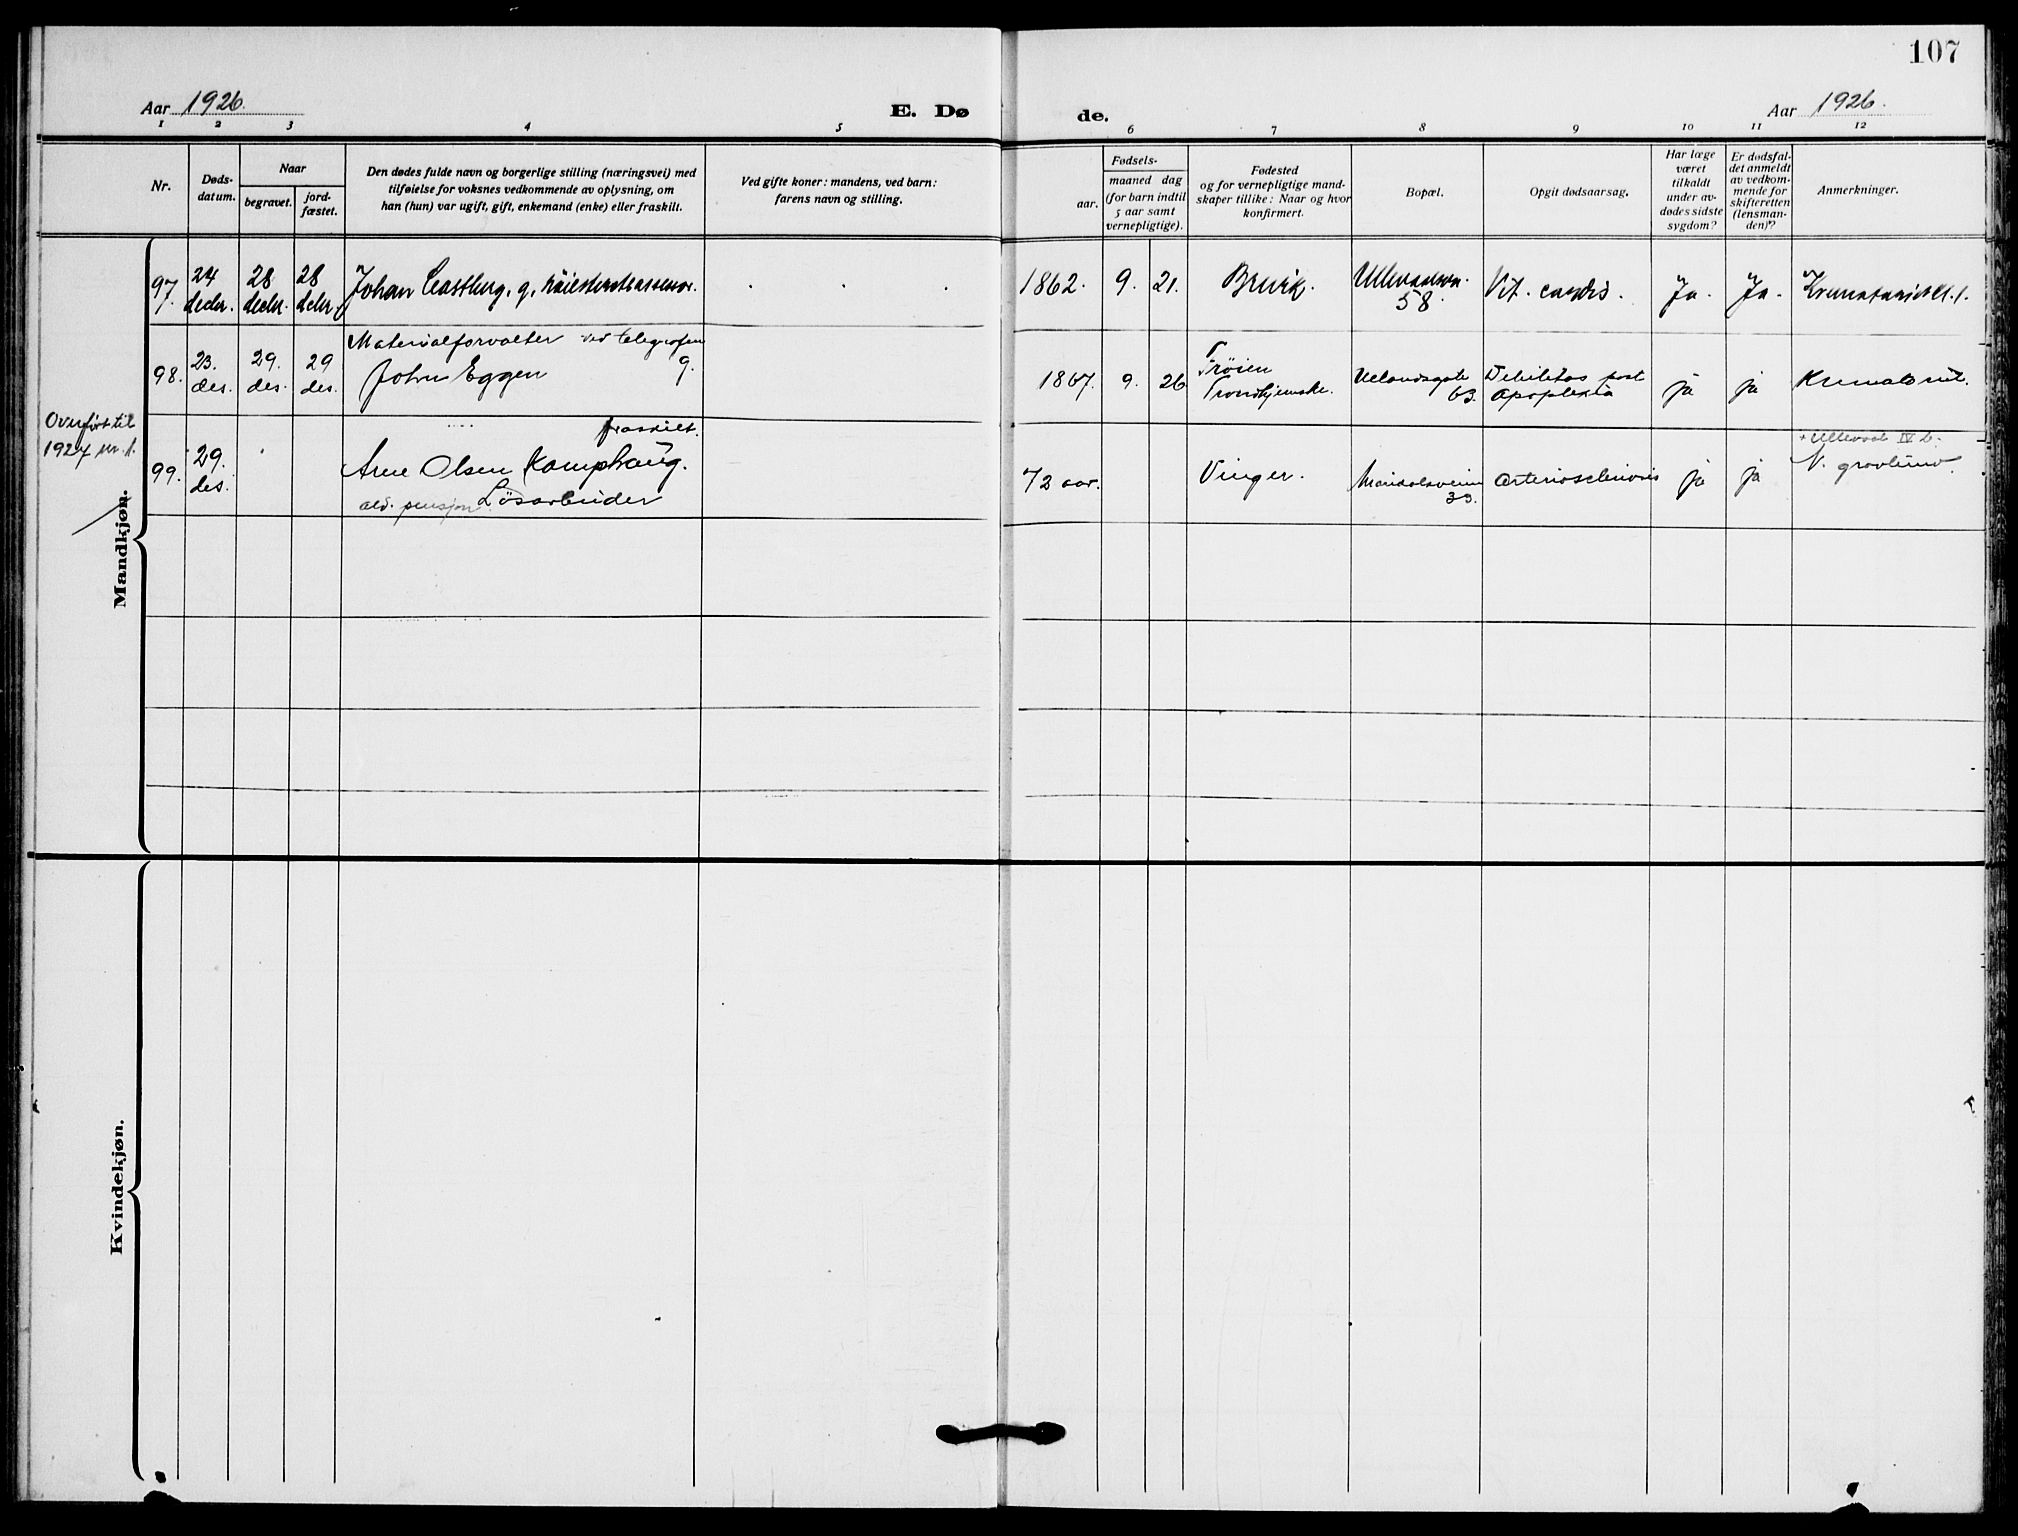 107
Aar 1926.
E. Dø
de.
Aar 1926.
1 2 3 4 5 6 7 8 9 10 11 12
Nr.
Døds-
datum.
Naar
begravet.
jord-
fæstet.
Den dødes fulde navn og borgerlige stilling (næringsvei) med
tilføielse for voksnes vedkommende av oplysning, om
han (hun) var ugift, gift, enkemand (enke) eller fraskilt.
Ved gifte koner: mandens, ved barn:
farens navn og stilling.
Fødsels-
aar.
maaned dag
(for barn indtil
5 aar samt
vernepligtige).
Fødested
og for vernepligtige mand-
skaper tillike: Naar og hvor
konfirmert.
Bopæl.
Opgit dødsaarsag.
Har læge
været
tilkaldt
under av-
dødes sidste
sygdom?
Er dødsfal-
det anmeldt
av vedkom-
mende for
skifteretten
(lensman-
den)?
Anmerkninger.
97.
24
decbr.
28
decbr.
28
decbr.
Johan Castberg, g, høiesteretsassessor.
1862. 9. 21.
Brevik.
58.
Vit. cordis.
Ja. Ja.
98.
23.
des.
29.
des.
29
des.
Materialforvalter ved telegrafen
John Eggen g.
1867. 9. 26
Uelandsgate
63.
Debilitas post
apoplexia
ja ja
Overført til
1927 nr. 1.
99.
29.
des.
fraskilt.
Arne Olsen Kamphaug.
ald. pensjon Løsarbeider
72 aar.
Vinger.
Maridalsveien
33.
Arteriosclerosis
ja ja
+ Ullevaal IV
N. gravlund.
Mandkjøn.
Kvindekjøn.